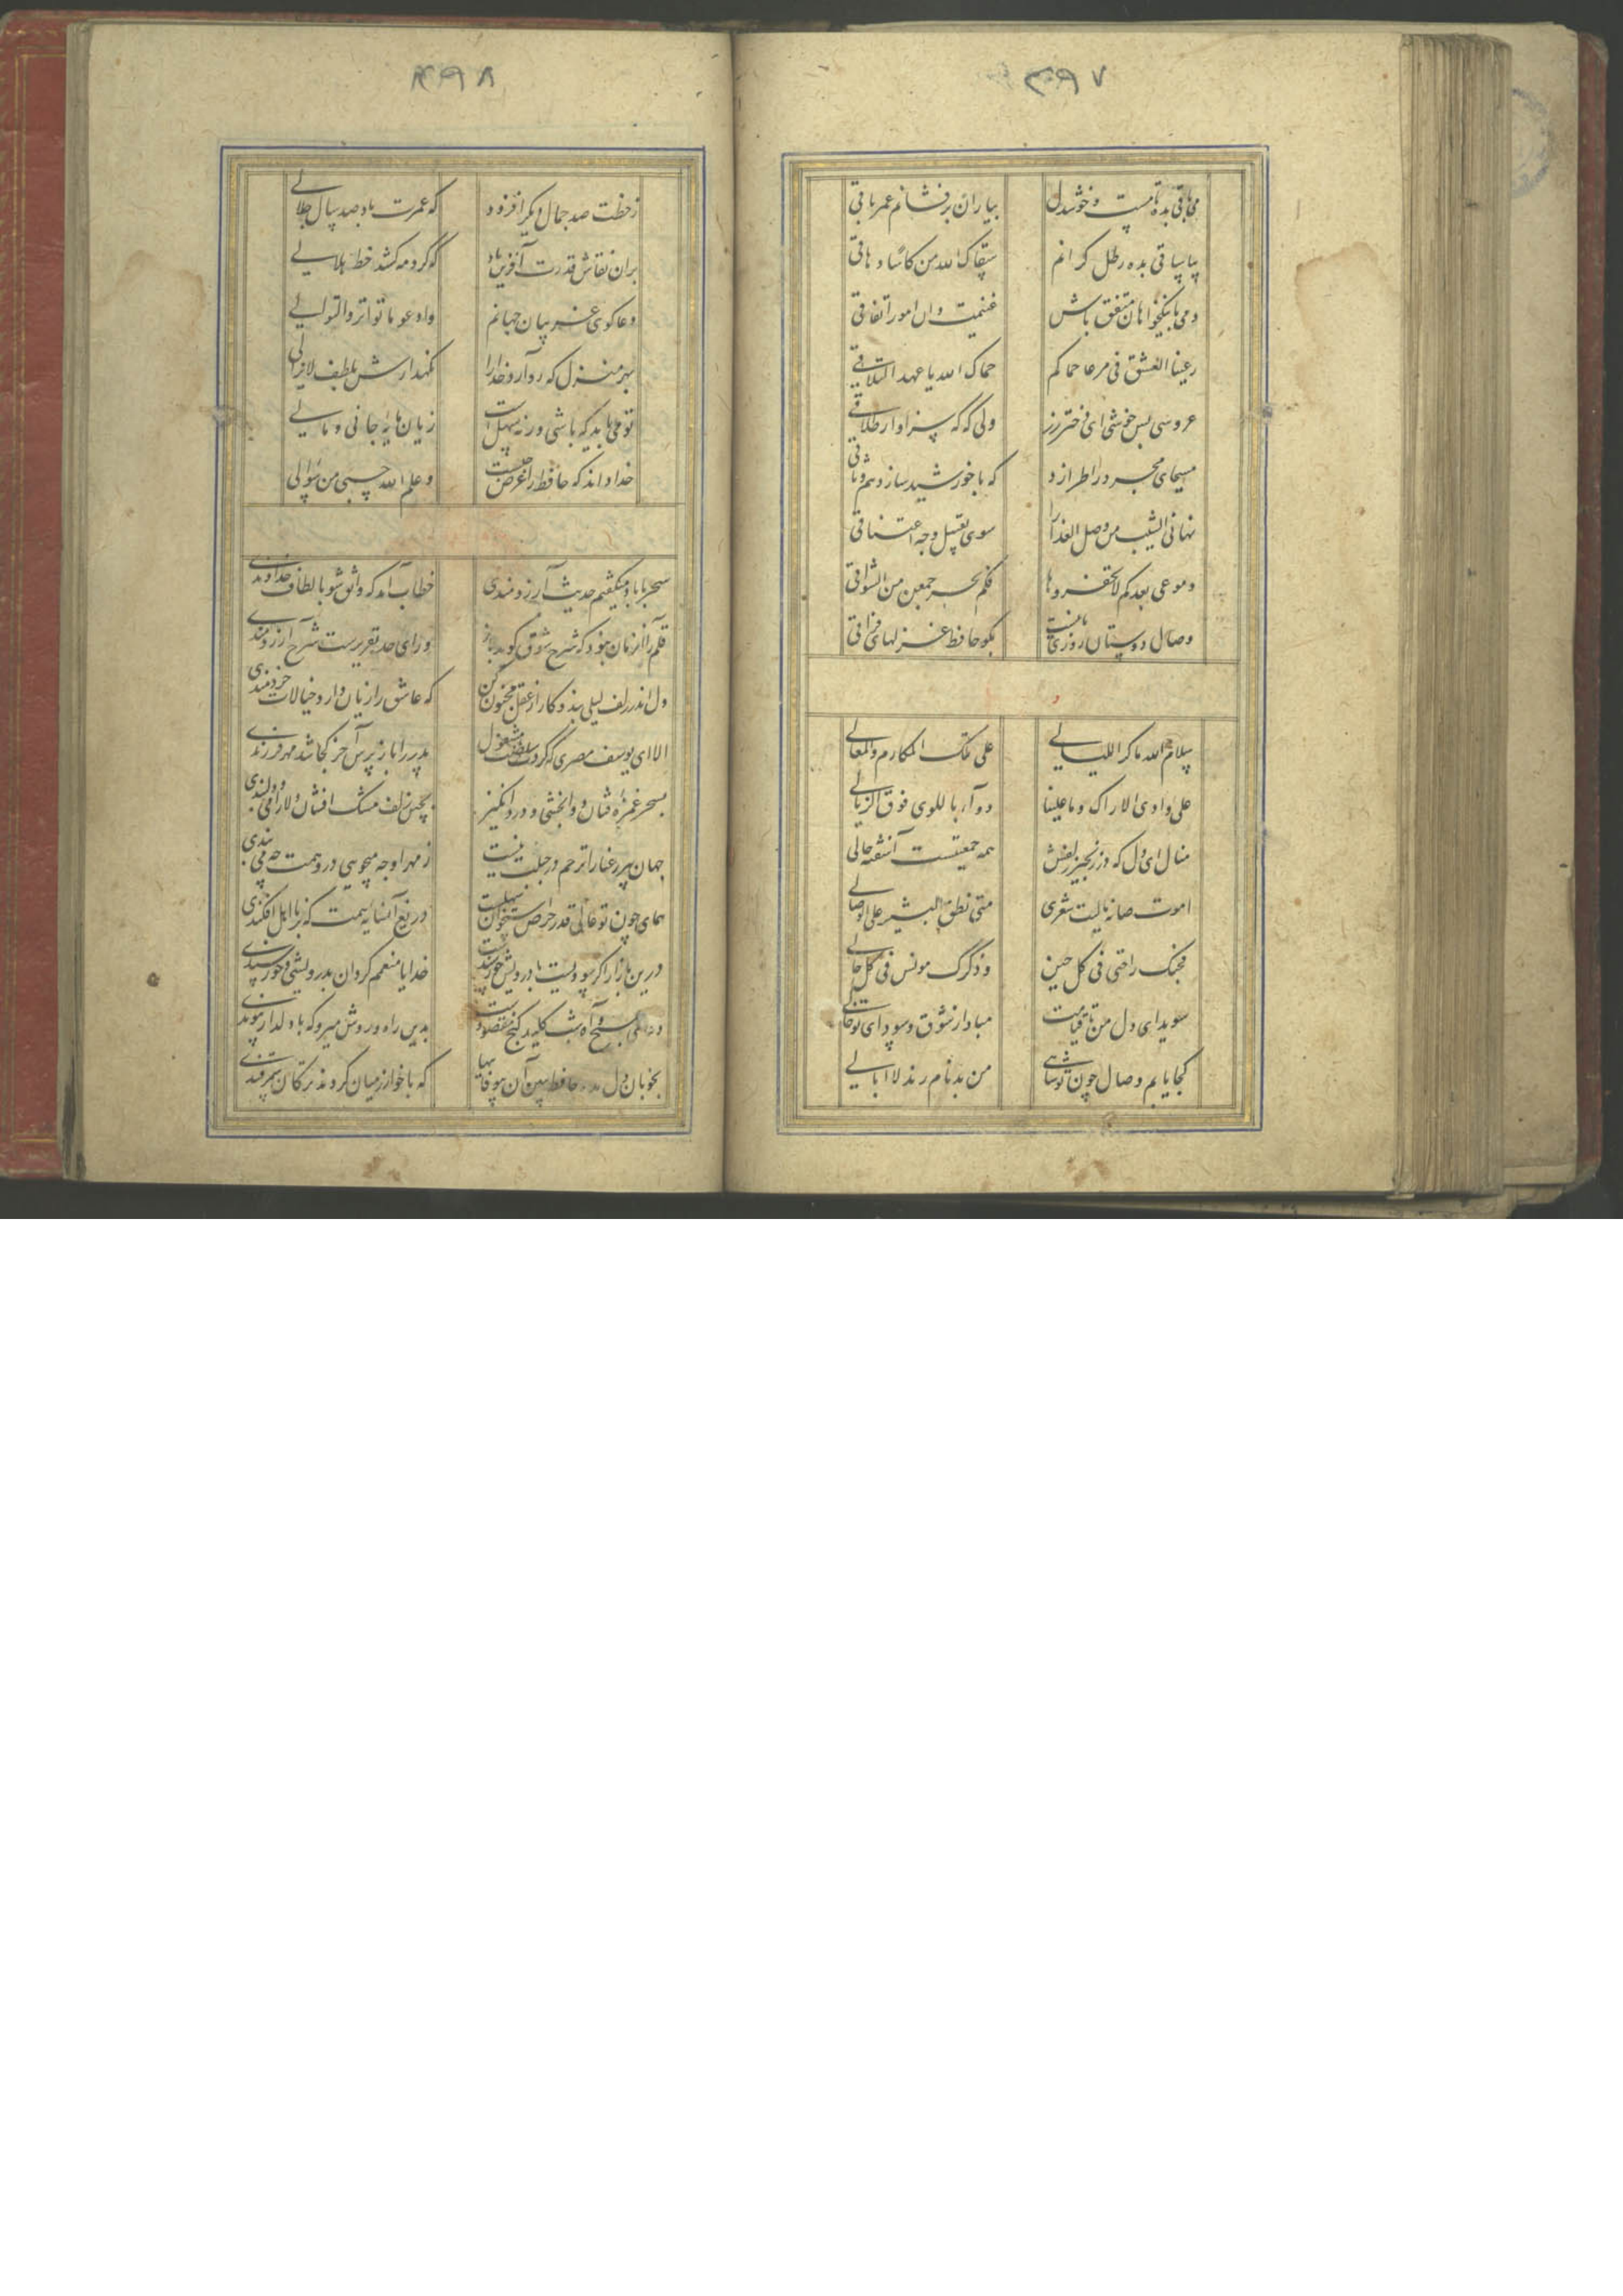 ۳۹۷
می باقی بده تا مست و خوشدل
بیاران بر فشانم عمر باقی
بیا ساقی بده رطل گرانم
سقاک الله من کاسا دهاقی
دمی با نیکخواهان متفق باش
غنیمت دان امور اتفاقی
ربیعا العشق فی مرعا حماکم
حماک الله یا عهد التلاقی
عروسی بس خوشی ای دختر رز
ولی که که سزاوار طلاقی
مسیحای مجرد را طرازد
که با خورشید سازد هم وثاقی
نهانی الشیب من وصل العذارا
سوی تقبیل وجه اعتناقی
دموعی بعدکم لاتحقروها
فکم بحر جمعن من الشواقی
وصال دوستان روزی ما نیست
بگو حافظ غزلهای فراقی
سلام الله ما کر اللیالی
علی ملک المکارم والمعالی
علی وادی الاراک و ما علینا
و دار باللوی فوق الزیالی
منال ای دل که در زنجیر زلفش
همه جمعیتست آشفته حالی
اموت صبابة یا لیت شعری
متی نطق البشیر علی الوصالی
فحبک راحتی فی کل حین
و ذکرک مونس فی کل حالی
سویدای دل من تا قیامت
مباد از شوق و سودای تو خالی
کجا یابم وصال چون تو شاهی
من بدنام رند لاابالی
۴۹۸
ز خطت صد جمال دیگر افزود
که عمرت باد صد سال جلالی
بران نقاش قدرت آفرین باد
که گرد مه کشد خط هلالی
دعاگوی غریبان جهانم
وادعو بالتواتر والتوالی
بهر منزل که رو آرد خدا را
نگهدارش بلطف لایزالی
تو می باید که باشی ورنه سهل است
زیان مایه جانی و مالی
خدا داند که حافظ را غرض چیست
و علم الله حسبی من سوالی
سحر با باد میگفتم حدیث آرزومندی
خطاب آمد که واثق شو بالطاف خداوندی
قلم را آن زبان نبود که شرح شوق گوید باز
ورای حد تقریرست شرح آرزومندی
دل اندر زلف لیلی بند و کار از عقل مجنون کن
که عاشق را زیان دارد خیالات خردمندی
الا ای یوسف مصری که کردت سلطنت مشغول
پدر را باز پرس آخر کجا شد مهر فرزندی
بسحر غمزه فتان دوا بخشی و درد انگیز
بچین زلف مشک افشان دلارامی و دلبندی
جهان پیر رعنا را ترحم در جبلت نیست
ز مهر او چه میجویی درو همت چه می بندی
همای چون تو عالی قدر حرص استخوان سهلست
دریغ آن سایه همت که بر نااهل افکندی
درین بازار اگر سودیست با درویش خورسندست
خدایا منعمم گردان بدرویشی و خورسندی
دعای صبح و آه شب کلید گنج مقصودست
بدین راه و روش میرو که با دلدار پیوندی
بخوبان دل مده حافظ ببین آن بیوفاییها
که با خوارزمیان کردند ترکان سمرقندی